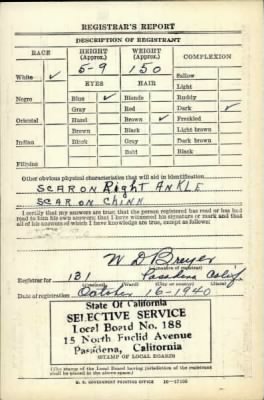 REGISTRAR'S REPORT
DESCRIPTION OF REGISTRANT
RACE HEIGHT (Approx.) WEIGHT (Approx.) COMPLEXION
5-9 150
White ✓ EYES HAIR Sallow
Light
Negro Blue ✓ Blonde Ruddy
Gray Red Dark ✓
Oriental Hazel Brown ✓ Freckled
Brown Black Light brown
Indian Black Gray Dark brown
Bald Black
Filipino
Other obvious physical characteristics that will aid in identification
SCAR ON Right ANKLE
SCAR ON CHINN
I certify that my answers are true; that the person registered has read or has had
read to him his own answers; that I have witnessed his signature or mark and that
all of his answers of which I have knowledge are true, except as follows:
W D Breyer
(Signature of registrar)
Registrar for 131 Pasadena Calif.
(Precinct) (Ward) (City or county) (State)
Date of registration October 16-1940
State Of California
SELECTIVE SERVICE
Local Board No. 188
15 North Euclid Avenue
Pasadena, California
(STAMP OF LOCAL BOARD)
(The stamp of the Local Board having jurisdiction of the registrant
shall be placed in the above space.)
U. S. GOVERNMENT PRINTING OFFICE 16-17105